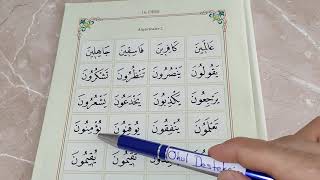 16. DERS
Alıştırmalar 2
عَالِمِينَ كَافِرِينَ فَاسِقِينَ جَاهِلِينَ
يَقُولُونَ يَنْصُرُونَ تَنْظُرُونَ تَشْكُرُونَ
يَرْجِعُونَ يَكْذِبُونَ يَخْدَعُونَ يَشْعُرُونَ
تَعْلَمُونَ يُنْفِقُونَ يُوقِنُونَ يُؤْمِنُونَ
يُقِيمُونَ تُقِيمُونَ
Okul Destek